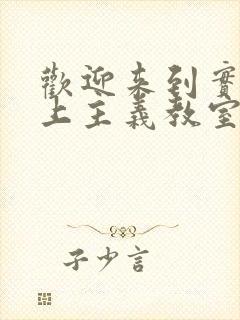 歡迎来到實
上主義教室
子少言